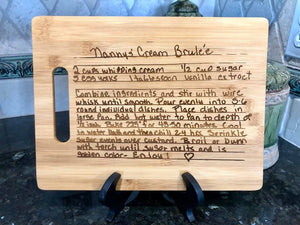 Nanny's Cream Brule'e
2 cups whipping cream 1/2 cup sugar
5 egg yolks 1 tablespoon vanilla extract
Combine ingredients and stir with wire
whisk until smooth. Pour evenly into 5-6
round individual dishes. Place dishes in
large pan. Add hot water to pan to depth of
1/2 inch. Bake 275° for 45-50 minutes. Cool
in water bath and then chill 24 hrs. Sprinkle
sugar evenly over custard. Broil or burn
with torch until sugar melts and is
golden color - Enjoy!